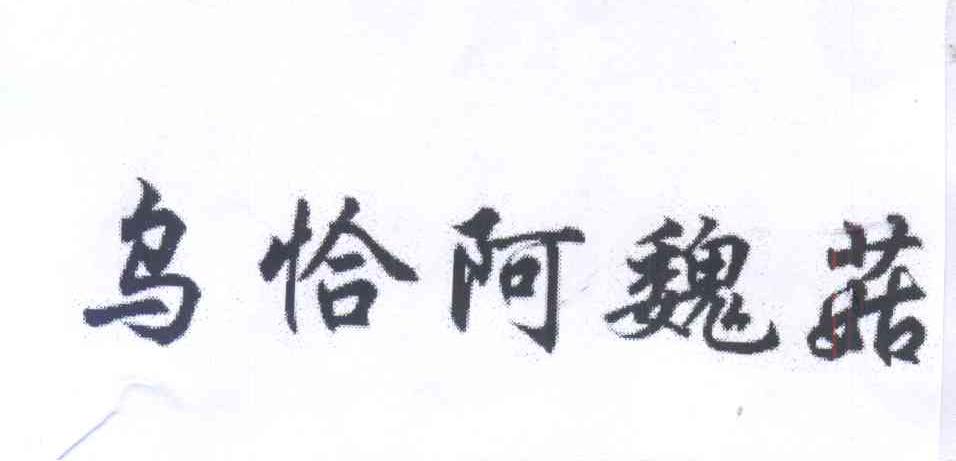 乌恰阿魏菇